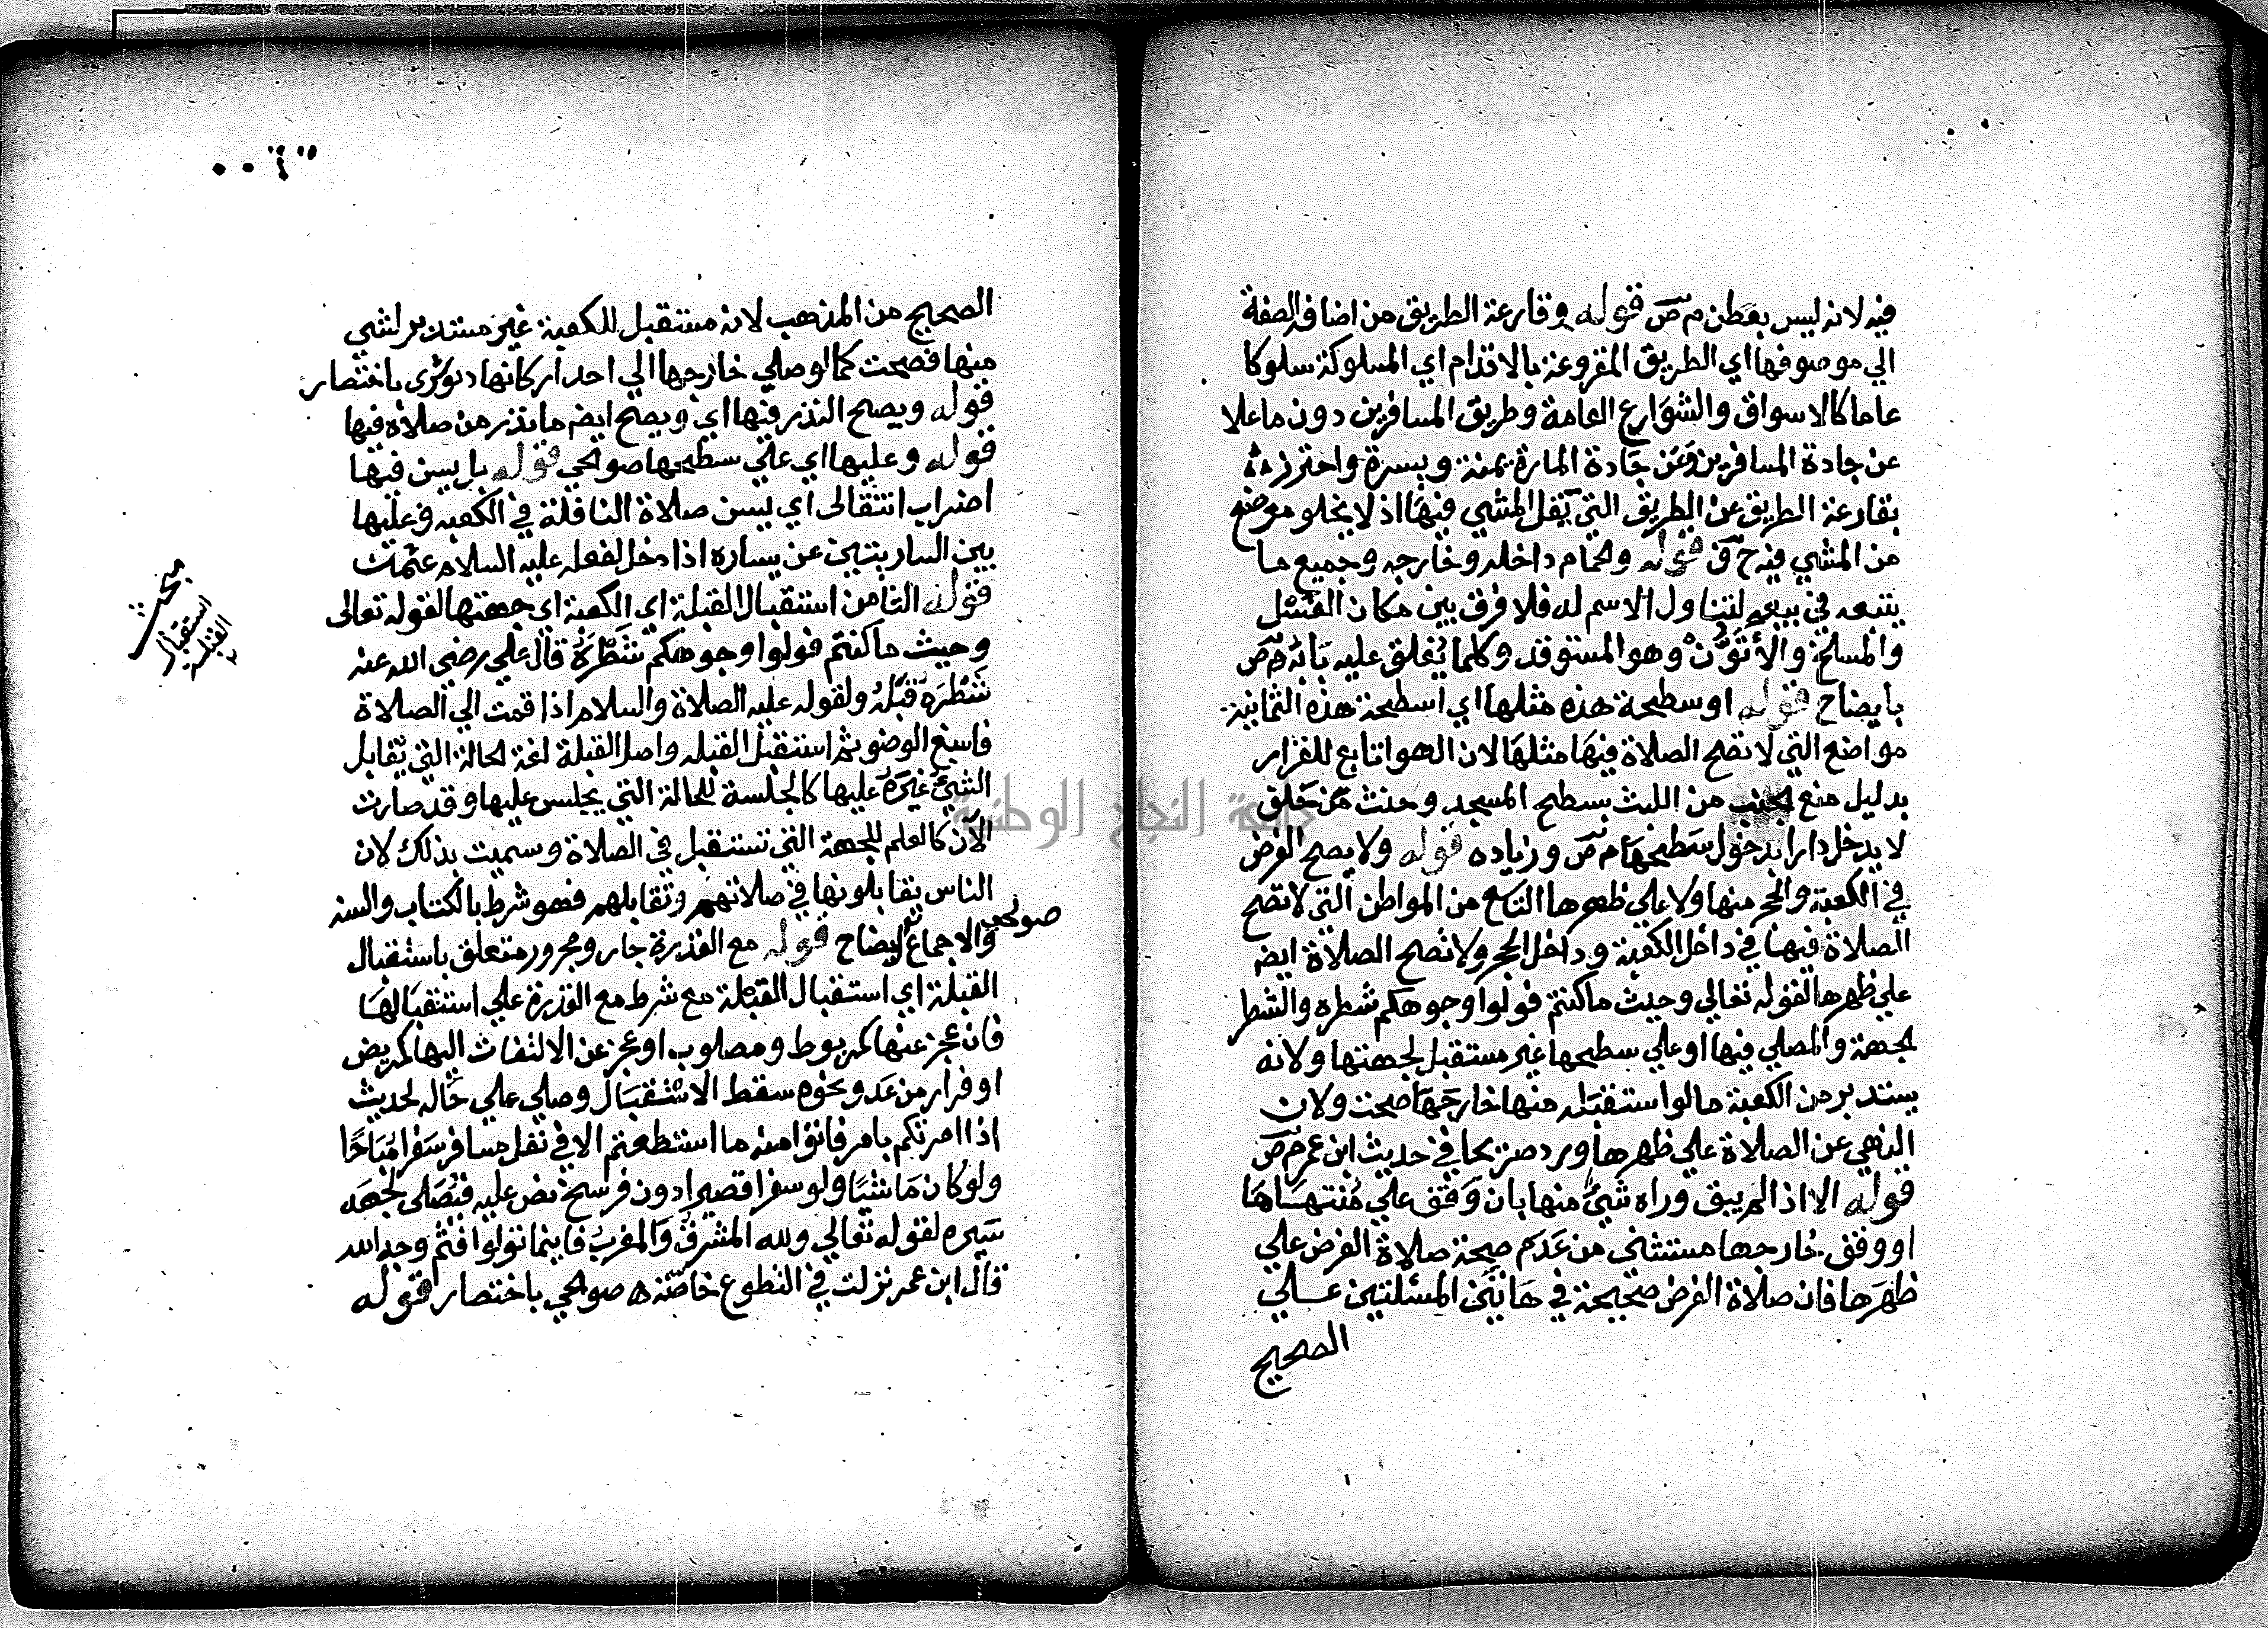 فيه لانه ليس بعطن م ص قوله وقارعة الطريق من اضافة الصفة
الي موصوفها اي الطريق المقروعة بالاقدام اي المسلوكة سلوكا
عاما كالاسواق والشوارع العامة وطريق المسافرين دون ما علا
عن جادة المسافرين وعن جادة المارة يمنة ويسرة واحترز
بقارعة الطريق عن الطريق التي يقل المشي فيها اذ لا يخلو موضع
من المشي فيه ح ف قوله والحمام داخله وخارجه وجميع ما
يتبعه في بيعه لتناول الاسم له فلا فرق بين مكان الغسل
والمسلخ والأتون وهو المستوقد وكلما يغلق عليه بابه م ص
بايضاح قوله او سطيحة هذه مثلها اي اسطيحة هذه الثمانية
مواضع التي لا تصح الصلاة فيها مثلها لان الهوا تابع للقرار
بدليل منع الجنب من اللبث بسطح المسجد وحنث من حلق
لا يدخل دارا بدخول سطحها م ص وزياده قوله ولا يصح الفرض
في الكعبة والحجر منها ولا علي ظهرها التاسع من المواطن التي لا تصح
الصلاة فيها في داخل الكعبة وداخل الحجر ولا تصح الصلاة ايض
علي ظهرها لقوله تعالي وحيث ما كنتم فولوا وجوهكم شطره والشطر
الجهة والمصلي فيها او علي سطحها غير مستقبل لجهتها ولانه
يستدبر من الكعبة ما لو استقبله منها خارجها صحت ولان
النهي عن الصلاة علي ظهرها ورد صريحا في حديث ابن عمر م ص
قوله الا اذا لم يبق وراه شئ منها بان وقف علي منتهاها
او وقف خارجها مستثنى من عدم صحة صلاة الفرض علي
ظهرها فان صلاة الفرض صحيحة في هاتين المسئلتين عــلي
الصحيح
الصحيح من المذهب لانه مستقبل للكعبة غير مستدبر لشي
منها فصحت كما لو صلي خارجها الي احد اركانها دنوشري باختصار
قوله ويصح النذر فيها اي ويصح ايض ما نذر من صلاة فيها
قوله وعليها اي علي سطحها صوالحي قوله بل يسن فيها
اضراب انتقالى اي يسن صلاة النافلة في الكعبه وعليها
بين الساريتين عن يساره اذا دخل لفعله عليه السلام عثمت
قوله الثامن استقبال القبلة اي الكعبة اي جهتها لقوله تعالى
وحيث ما كنتم فولوا وجوهكم شطره قال علي رضي الله عنه
شطره قبله ولقوله عليه الصلاة والسلام اذا قمت الي الصلاة
فاسبغ الوضو ثم استقبل القبله واصل القبلة لغة الحالة التي يقابل
الشيء غيره عليها كالجلسة للحالة التي يجلس عليها وقد صارت
الآن كالعلم للجهة التي تستقبل في الصلاة وسميت بذلك لان
الناس يقابلونها في صلاتهم وتقابلهم فهو شرط بالكتاب والسنه
والاجماع صوالحي بايضاح قوله مع القدرة جار ومجرور متعلق باستقبال
القبلة اي استقبال القبلة مع شرط مع القدرة علي استقبالها
فان عجز عنها كمربوط ومصلوب او عجز عن الالتفات اليها كمريض
او فرار من عدو ونحوه سقط الاستقبال وصلي علي حاله لحديث
اذا امرتكم بامر فاتوا منه ما استطعتم الا في نفل مسافر سفرا مباحا
ولو كان ماشيا ولو سفرا قصيرا دون فرسخ نص عليه فتصلى لجهه
سيره لقوله تعالي ولله المشرق والمغرب فاينما تولوا فثم وجه الله
قال ابن عمر نزلت في التطوع خاصة ه صوالحي باختصار قوله
مبحث
استقبال
القبلة
جامعة النجاح الوطنية